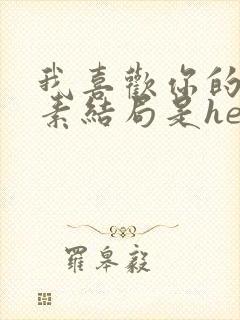 我喜歡你的
素結局是he
羅皋毅